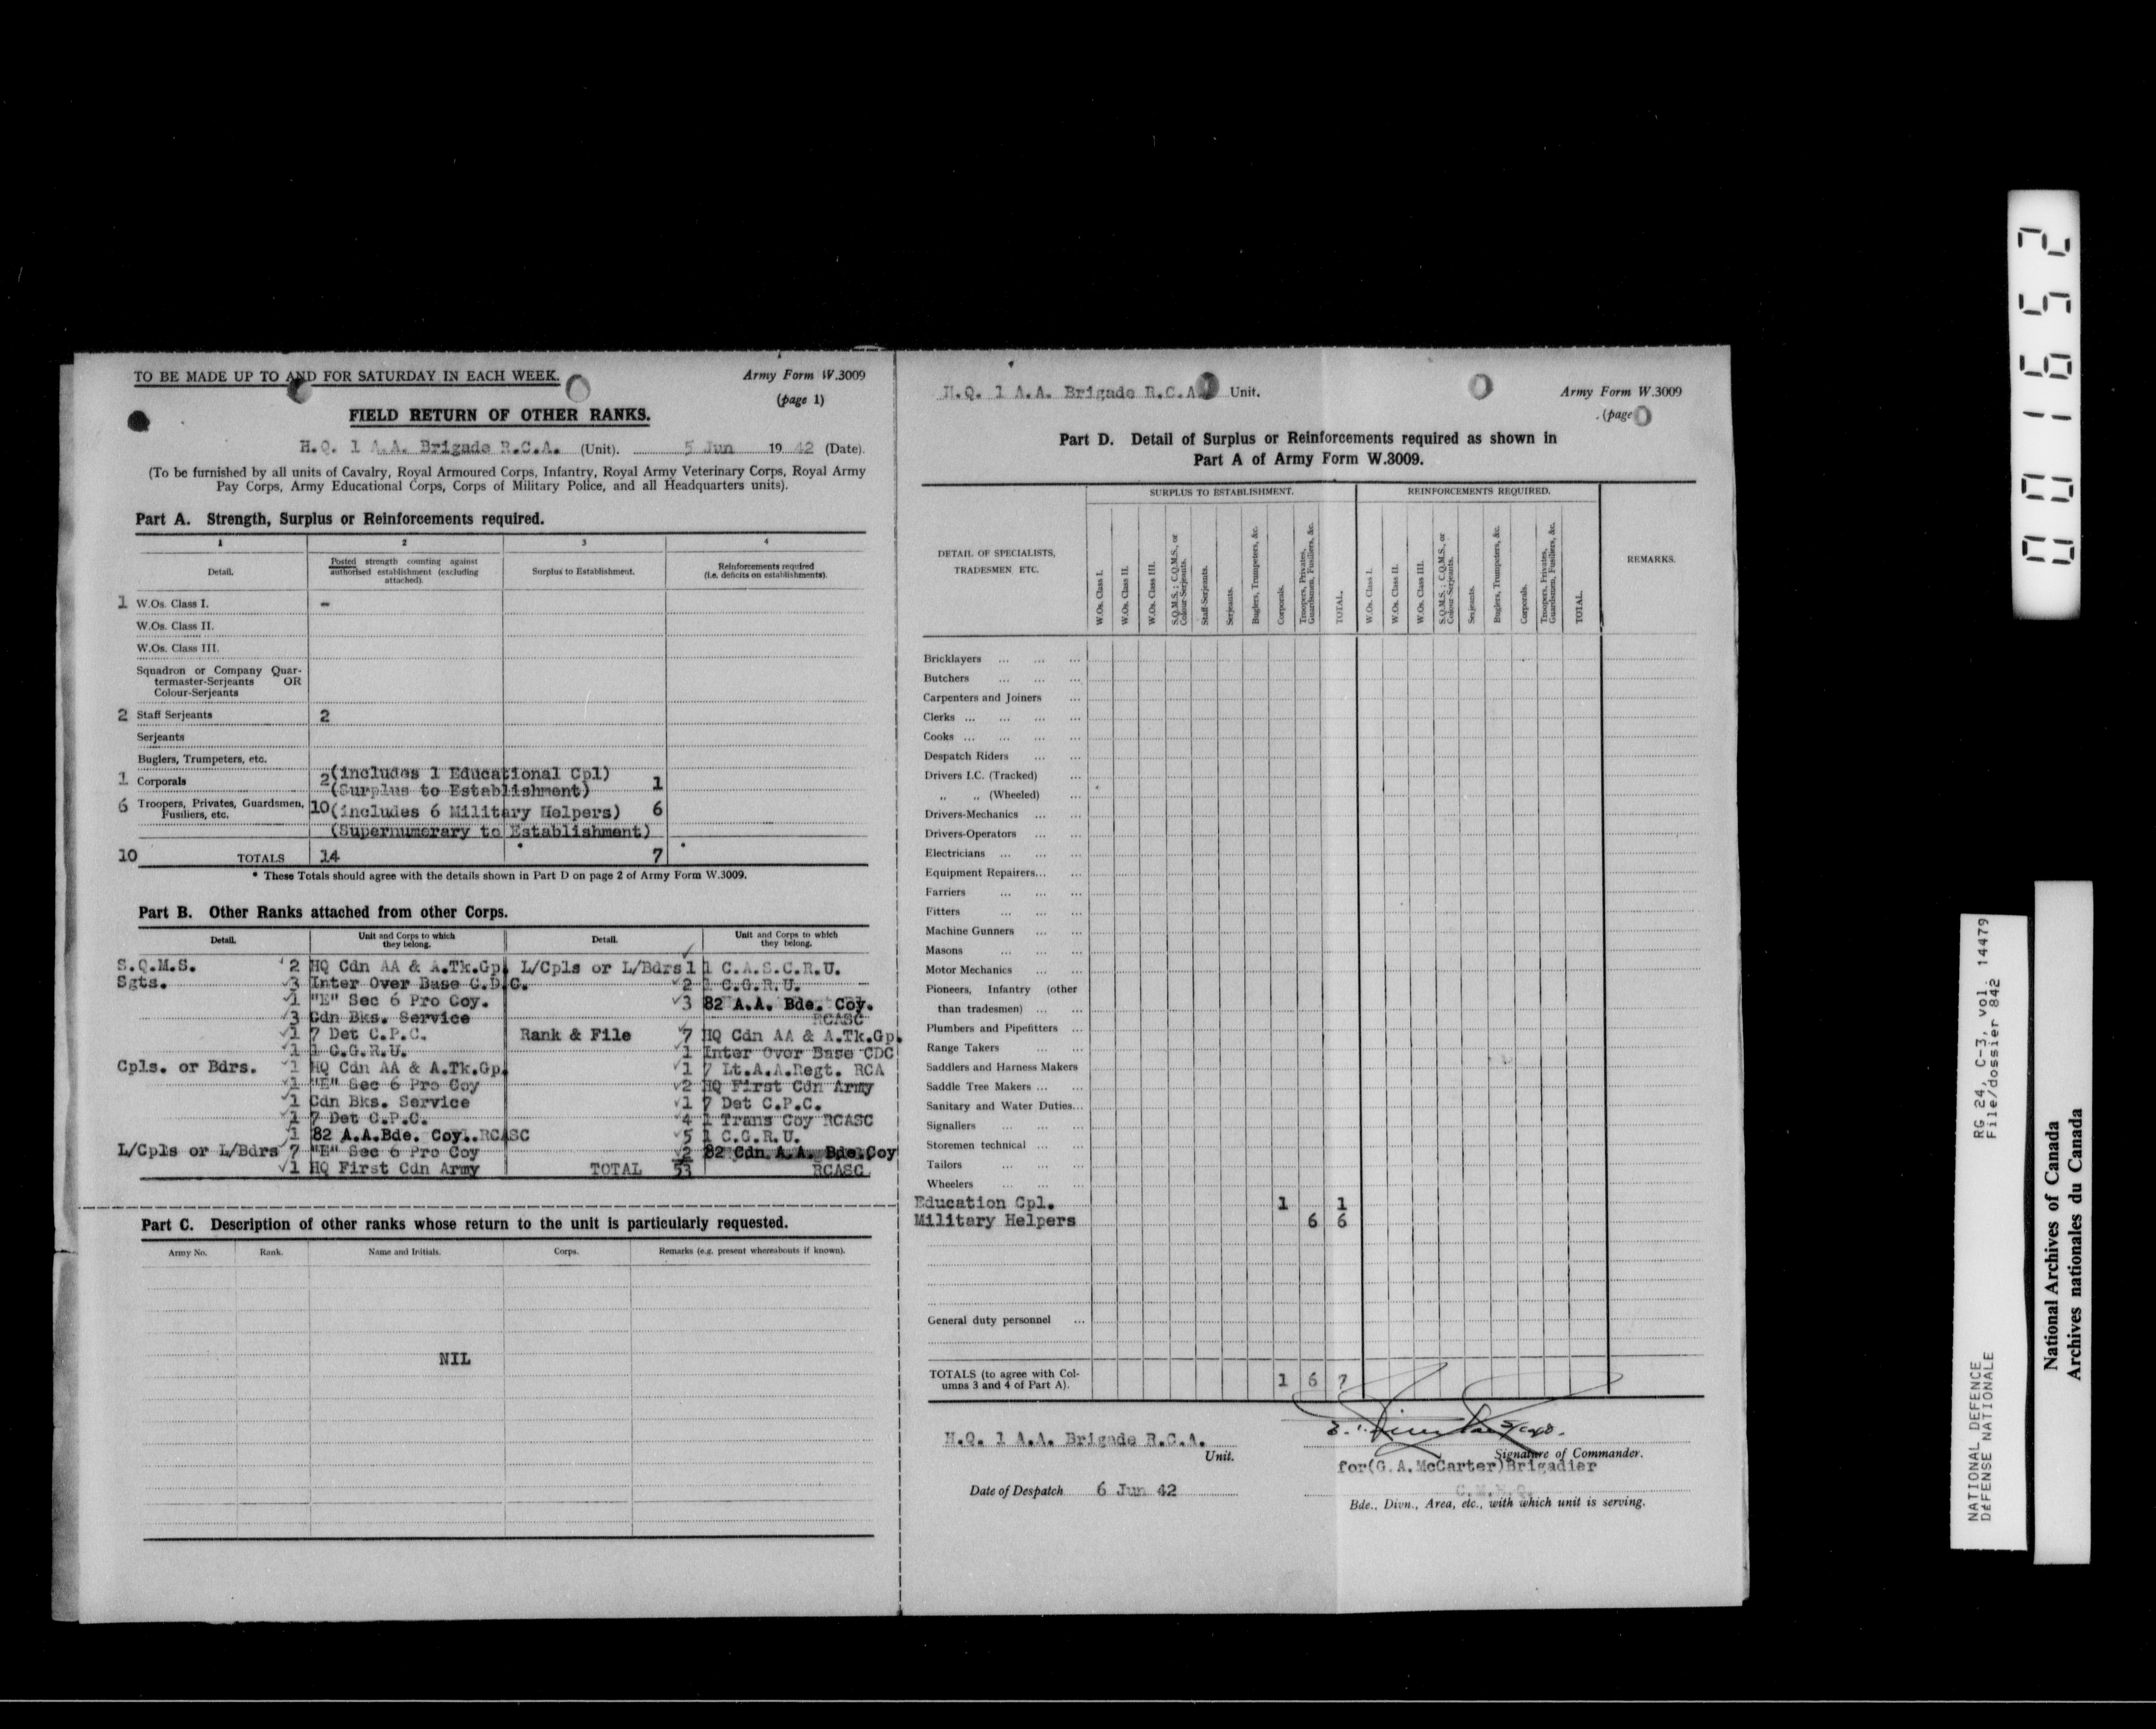 TO BE MADE UP TO AND FOR SATURDAY IN EACH WEEK.
Army Form W.3009
(page 1)
FIELD RETURN OF OTHER RANKS.
H.Q. 1 A.A. Brigade R.C.A. (Unit). 5 Jun 19 42 (Date).
(To be furnished by all units of Cavalry, Royal Armoured Corps, Infantry, Royal Army Veterinary Corps, Royal Army
Pay Corps, Army Educational Corps, Corps of Military Police, and all Headquarters units).
Part A. Strength, Surplus or Reinforcements required.
1 2 3 4
Detail.
Posted strength counting against
authorised establishment (excluding
attached).
Surplus to Establishment.
Reinforcements required
(i.e. deficits on establishments).
1 W.Os. Class I. -
W.Os. Class II.
W.Os. Class III.
Squadron or Company Quar-
termaster-Serjeants OR
Colour-Serjeants
2 Staff Serjeants 2
Serjeants
Buglers, Trumpeters, etc.
1 Corporals 2 (includes 1 Educational Cpl)
(Surplus to Establishment) 1
6 Troopers, Privates, Guardsmen,
Fusiliers, etc. 10 (includes 6 Military Helpers) 6
(Supernumerary to Establishment)
10 TOTALS 14 * 7 *
* These Totals should agree with the details shown in Part D on page 2 of Army Form W.3009.
Part B. Other Ranks attached from other Corps.
Detail. Unit and Corps to which
they belong. Detail. Unit and Corps to which
they belong.
S.Q.M.S. 2 HQ Cdn AA & A.Tk.Gp. L/Cpls or L/Bdrs 1 1 C.A.S.C.R.U.
Sgts. 3 Inter Over Base C.D.C. 2 1 C.G.R.U.
1 "E" Sec 6 Pro Coy. 3 82 A.A. Bde. Coy.
3 Cdn Bks. Service RCASC
1 7 Det C.P.C. Rank & File 7 HQ Cdn AA & A.Tk.Gp.
1 1 C.G.R.U. 1 Inter Over Base CDC
Cpls. or Bdrs. 1 HQ Cdn AA & A.Tk.Gp. 1 7 Lt.A.A.Regt. RCA
1 "E" Sec 6 Pro Coy 2 HQ First Cdn Army
1 Cdn Bks. Service 1 7 Det C.P.C.
1 7 Det C.P.C. 4 1 Trans Coy RCASC
1 82 A.A.Bde. Coy..RCASC 5 1 C.G.R.U.
L/Cpls or L/Bdrs 7 "E" Sec 6 Pro Coy 2 82 Cdn. A.A. Bde.Coy
1 HQ First Cdn Army TOTAL 53 RCASC
Part C. Description of other ranks whose return to the unit is particularly requested.
Army No. Rank. Name and Initials. Corps. Remarks (e.g. present whereabouts if known).
NIL
H.Q. 1 A.A. Brigade R.C.A. Unit.
Army Form W.3009
(page
Part D. Detail of Surplus or Reinforcements required as shown in
Part A of Army Form W.3009.
DETAIL OF SPECIALISTS,
TRADESMEN, ETC.
SURPLUS TO ESTABLISHMENT.
W.Os. Class I.
W.Os. Class II.
W.Os. Class III.
S.Q.M.S. ; C.Q.M.S., or
Colour-Serjeants.
Staff-Serjeants.
Serjeants.
Buglers, Trumpeters, &c.
Corporals.
Troopers, Privates,
Guardsmen, Fusiliers, &c.
TOTAL.
REINFORCEMENTS REQUIRED.
W.Os. Class I.
W.Os. Class II.
W.Os. Class III.
S.Q.M.S. ; C.Q.M.S., or
Colour-Serjeants.
Serjeants.
Buglers, Trumpeters, &c.
Corporals.
Troopers, Privates,
Guardsmen, Fusiliers, &c.
TOTAL.
REMARKS.
Bricklayers ... ... ...
Butchers ... ... ...
Carpenters and Joiners ...
Clerks ... ... ... ...
Cooks ... ... ... ...
Despatch Riders ... ...
Drivers I.C. (Tracked) ...
" " (Wheeled) ...
Drivers-Mechanics ... ...
Drivers-Operators ... ...
Electricians ... ... ...
Equipment Repairers... ...
Farriers ... ... ...
Fitters ... ... ...
Machine Gunners ... ...
Masons ... ... ...
Motor Mechanics ... ...
Pioneers, Infantry (other
than tradesmen) ... ...
Plumbers and Pipefitters ...
Range Takers ... ...
Saddlers and Harness Makers
Saddle Tree Makers ... ...
Sanitary and Water Duties...
Signallers ... ... ...
Storemen technical ... ...
Tailors ... ... ...
Wheelers ... ... ...
Education Cpl. 1 1
Military Helpers 6 6
General duty personnel ...
TOTALS (to agree with Col-
umns 3 and 4 of Part A). 1 6 7
H.Q. 1 A.A. Brigade R.C.A.
Unit.
Signature of Commander.
for(G.A.McCarter)Brigadier
Date of Despatch 6 Jun 42
C.M.H.Q.
Bde., Divn., Area, etc., with which unit is serving.
001652
NATIONAL DEFENCE
DÉFENSE NATIONALE
RG 24, C-3, vol. 14479
File/dossier 842
National Archives of Canada
Archives nationales du Canada